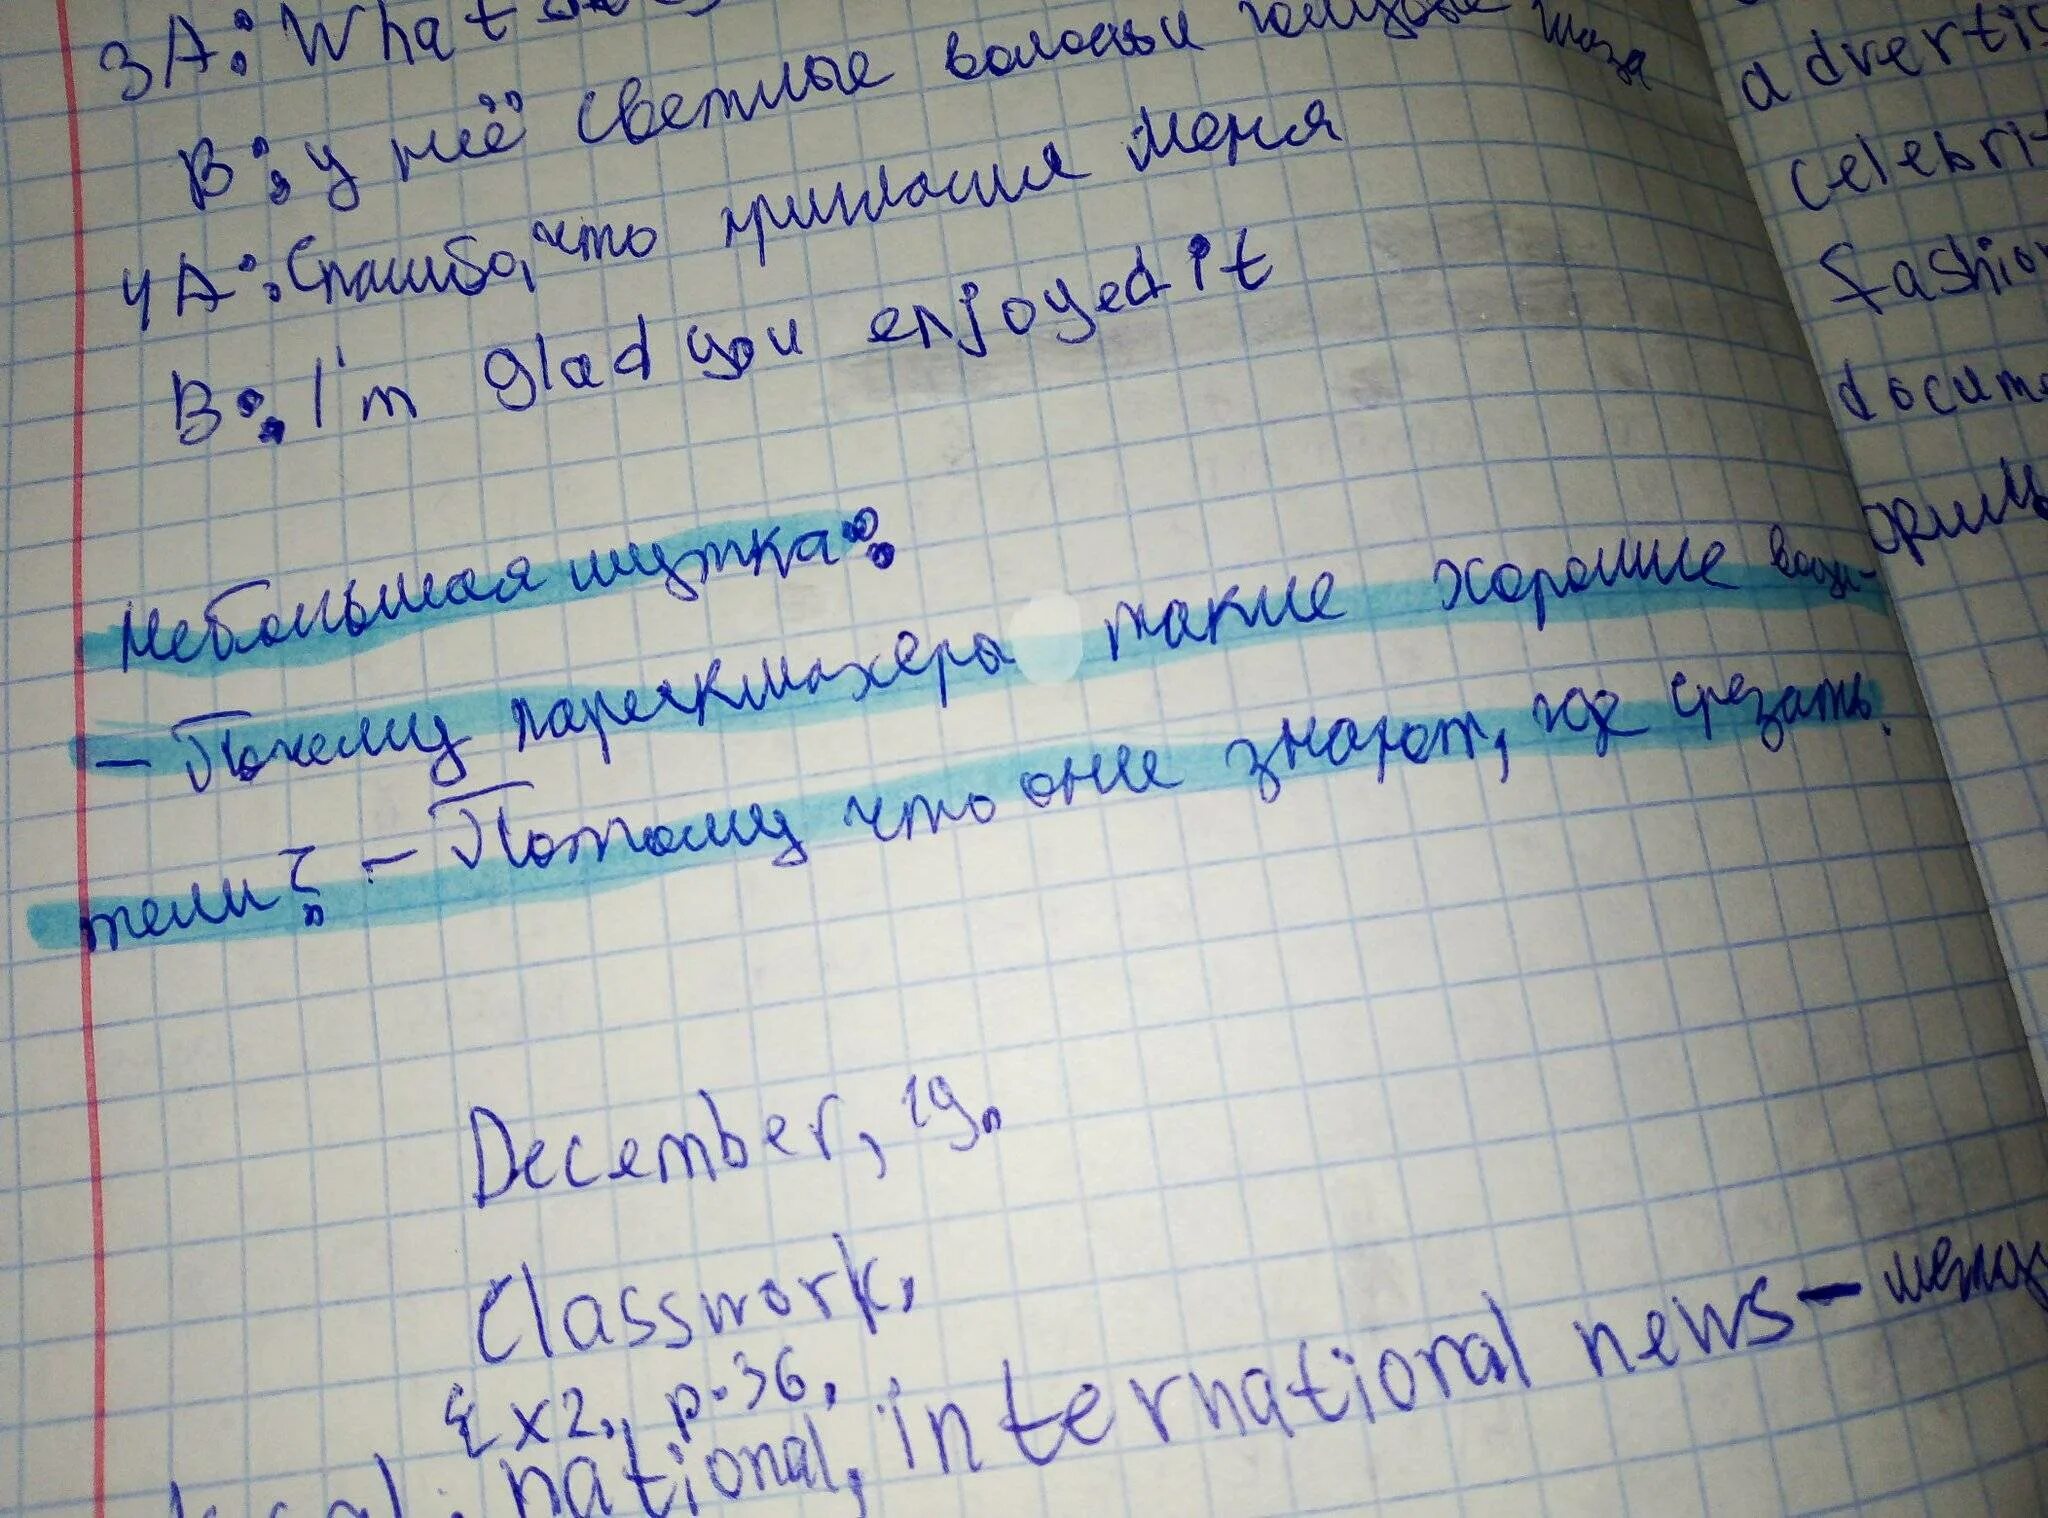 3A: What
B: у неё светлые волосы и голубые глаза
4A: Спасибо, что пригласил меня
B: I'm glad you enjoyed it
Небольшая шутка:
- Почему парекмахеры такие хорошие води-
тели? - Потому что они знают, где срезать.
December, 19.
Classwork.
Ex2., p.36.
local, national, international news -
advertis
celebrit
fashion
docume